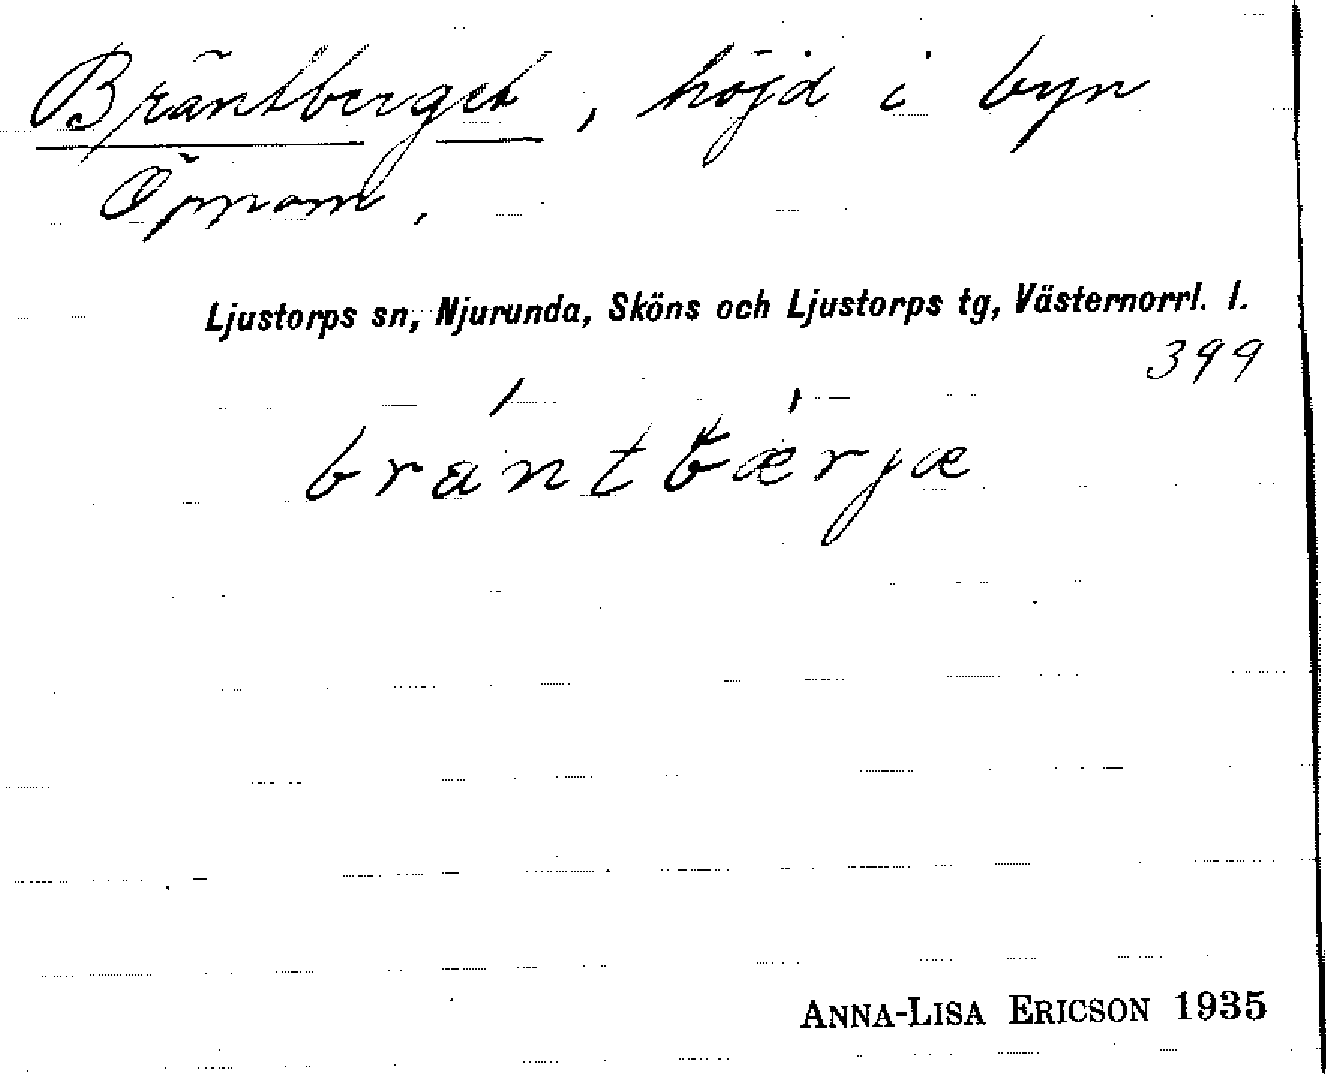 Bräntberget, höjd i byn
Öppom.
Ljustorps sn, Njurunda, Sköns och Ljustorps tg, Västernorrl. l.
399
bräntbærjæ
ANNA-LISA ERICSON 1935